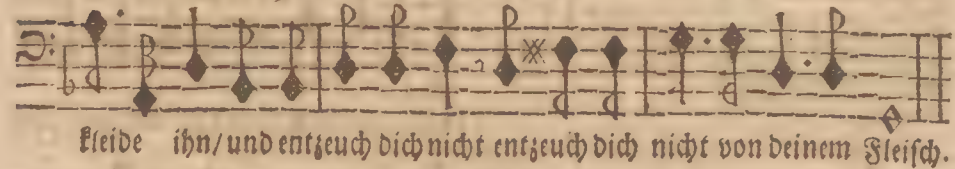 kleide ihn/ und entzeuch dich nicht entzeuch dich nicht von deinem Fleisch.